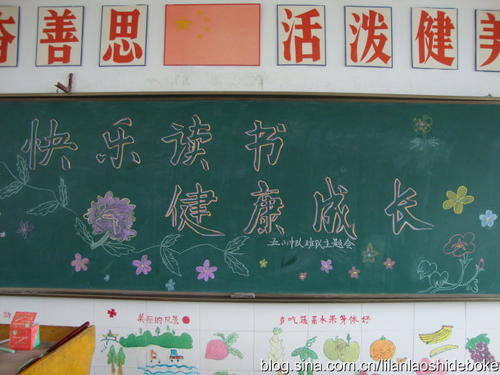 奋善思 活泼健美
快乐读书
健康成长
中队班队主题会
美丽的风景
多吃蔬菜水果身体好
blog.sina.com.cn/lilanlaoshideboke